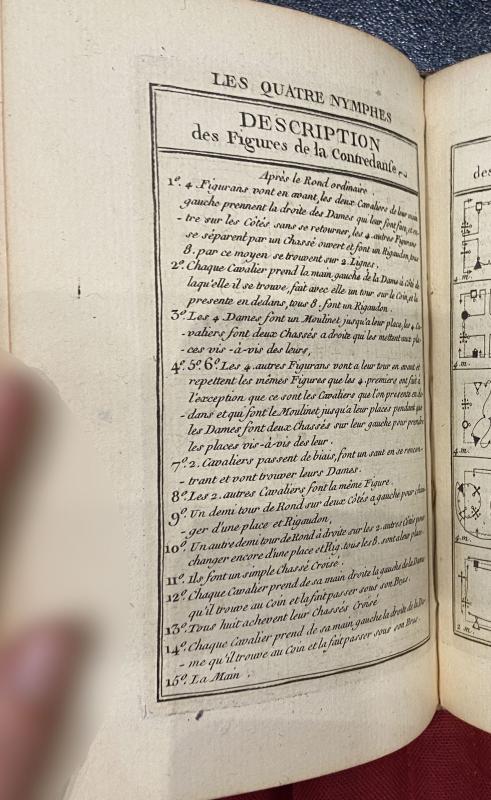 LES QUATRE NYMPHES
DESCRIPTION
des Figures de la Contredanse
Après le Rond ordinaire.
1º. 4 Figurans vont en avant, les deux Cavaliers de leur main
gauche prennent la droite des Dames qui leur font face, et en-
-tre sur les Côtés sans se retourner, les 4 autres Figurans
se séparent par un Chassé ouvert et font un Rigaudon, tous
8. par ce moyen se trouvent sur 2 Lignes.
2º. Chaque Cavalier prend la main gauche de la Dame à Côté de
laqu'elle il se trouve, fait avec elle un tour sur le Coin, et la
presente en dedans, tous 8. font un Rigaudon.
3º. Les 4 Dames font un Moulinet jusqu'a leur place, les 4 Ca-
-valiers font deux Chassés a droite qui les mettent aux pla-
-ces vis-à-vis des leurs,
4º. 5º. 6º. Les 4 autres Figurans vont a leur tour en avant et
repettent les mêmes Figures que les 4 premiers ont fait à
l'exception que ce sont les Cavaliers que l'on presente en de-
-dans et qui font le Moulinet jusqu'à leur places pendant que
les Dames font deux Chassés sur leur gauche pour prendre
les places vis-à-vis des leur.
7º. 2. Cavaliers passent de biais, font un saut en se rencon-
-trant et vont trouver leurs Dames.
8º. Les 2. autres Cavaliers font la même Figure.
9º. Un demi tour de Rond sur deux Côtés a gauche pour chan-
-ger d'une place et Rigaudon,
10º. Un autre demi tour de Rond à droite sur les 2. autres Côtés pour
changer encore d'une place et Rig. tous les 8. sont a leur place.
11º. Ils font un simple Chassé Croisé.
12º. Chaque Cavalier prend de sa main droite la gauche de la Dame
qu'il trouve au Coin et la fait passer sous son Bras.
13º. Tous huit achevent leur Chassés Croisé.
14º. Chaque Cavalier prend de sa main gauche la droite de la Da-
-me qu'il trouve au Coin et la fait passer sous son Bras.
15º. La Main.
des
4. m.
4. m.
4. m.
2. m.